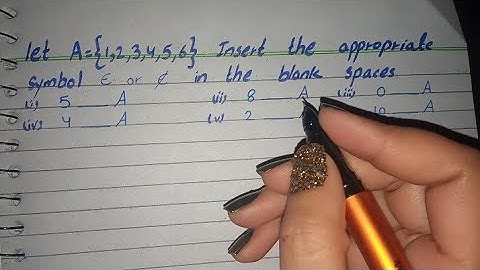 let A={1,2,3,4,5,6} Insert the appropriate
symbol ∈ or ∉ in the blank spaces
(i) 5 ___ A (ii) 8 ___ A (iii) 0 ___ A
(iv) 4 ___ A (v) 2 ___ 10 ___ A